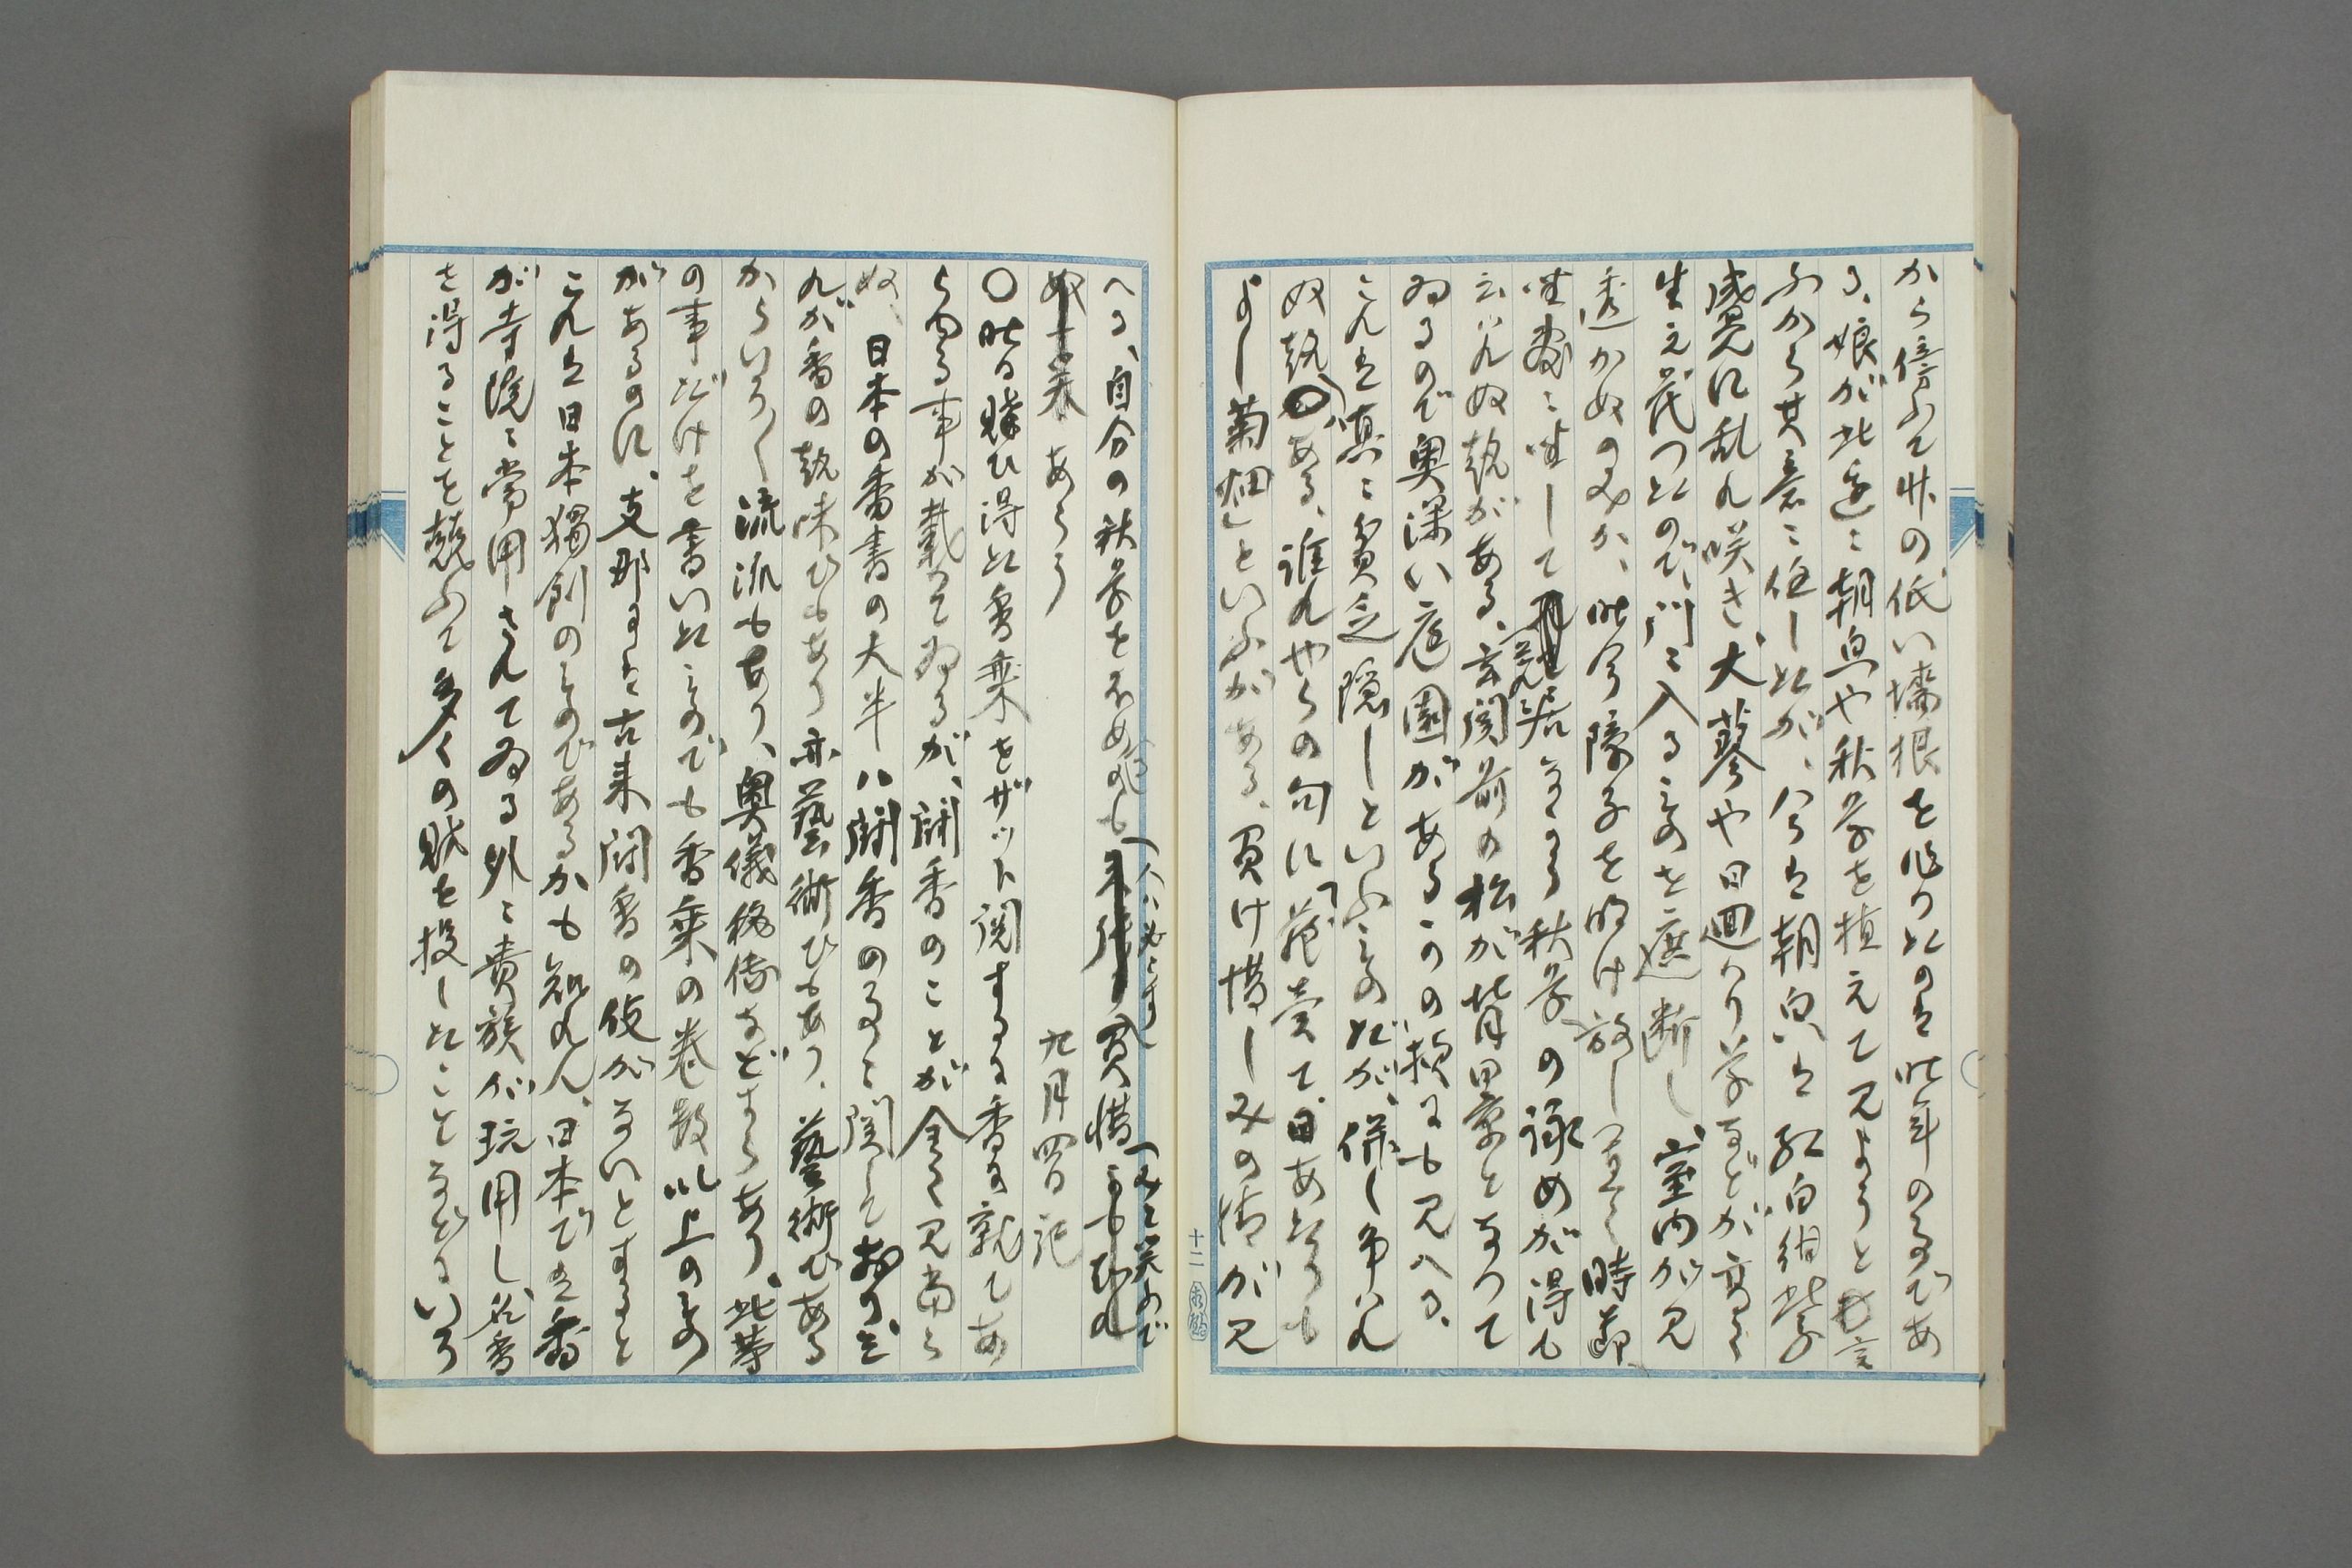 から傍ふて丈の低い墻根を作つたのは昨年の事であ
る、娘が此辺に朝皃や秋草を植えて見ようと言
ふから其意に任したが、今は朝皃は紅白紺紫
盛んに乱れ咲き、大蓼や日廻り草などが高く
生え茂つたので、門に入るものを遮断し、室内が見
透かぬのみか、昨今障子を明け放し置く時節
坐敷に坐して居ながら秋草の眺めが得も
云はれぬ趣がある、玄関前の松が背景となつて
ゐるので奥深い庭園があるかの様にも見へる、
これは真に貧乏隠しといふものだが、併し争はれ
ぬ趣である、誰れやらの句に「花売て、日あたりも
よし菊畑」といふがある、買け惜しみの情が見
へる、自分の秋草を不め(人は必らずし)買惜(みと笑ふで)
あらう 九月四日記
〇昨日購ひ得た香乗をザット閲するに香に就てあ
らゆる事が載つてゐるが、聞香のことが全く見当ら
ぬ、日本の香書の大半ハ聞香の事に関して居り、こ
れが香の趣味でもあり亦藝術でもあり、藝術である
からいろ〱流派もあり、奥儀秘傳などすらあり、此等
の事だけを書いたものでも香乗の巻数以上のもの
があるのに、支那には古来聞香の伎がないとすると
これは日本獨創のものであるかも知れん、日本では香
が寺院に常用されてゐる外に貴族が玩用し、名香
を得ることを競ふて多くの財を投じたことなどはいろ
十二